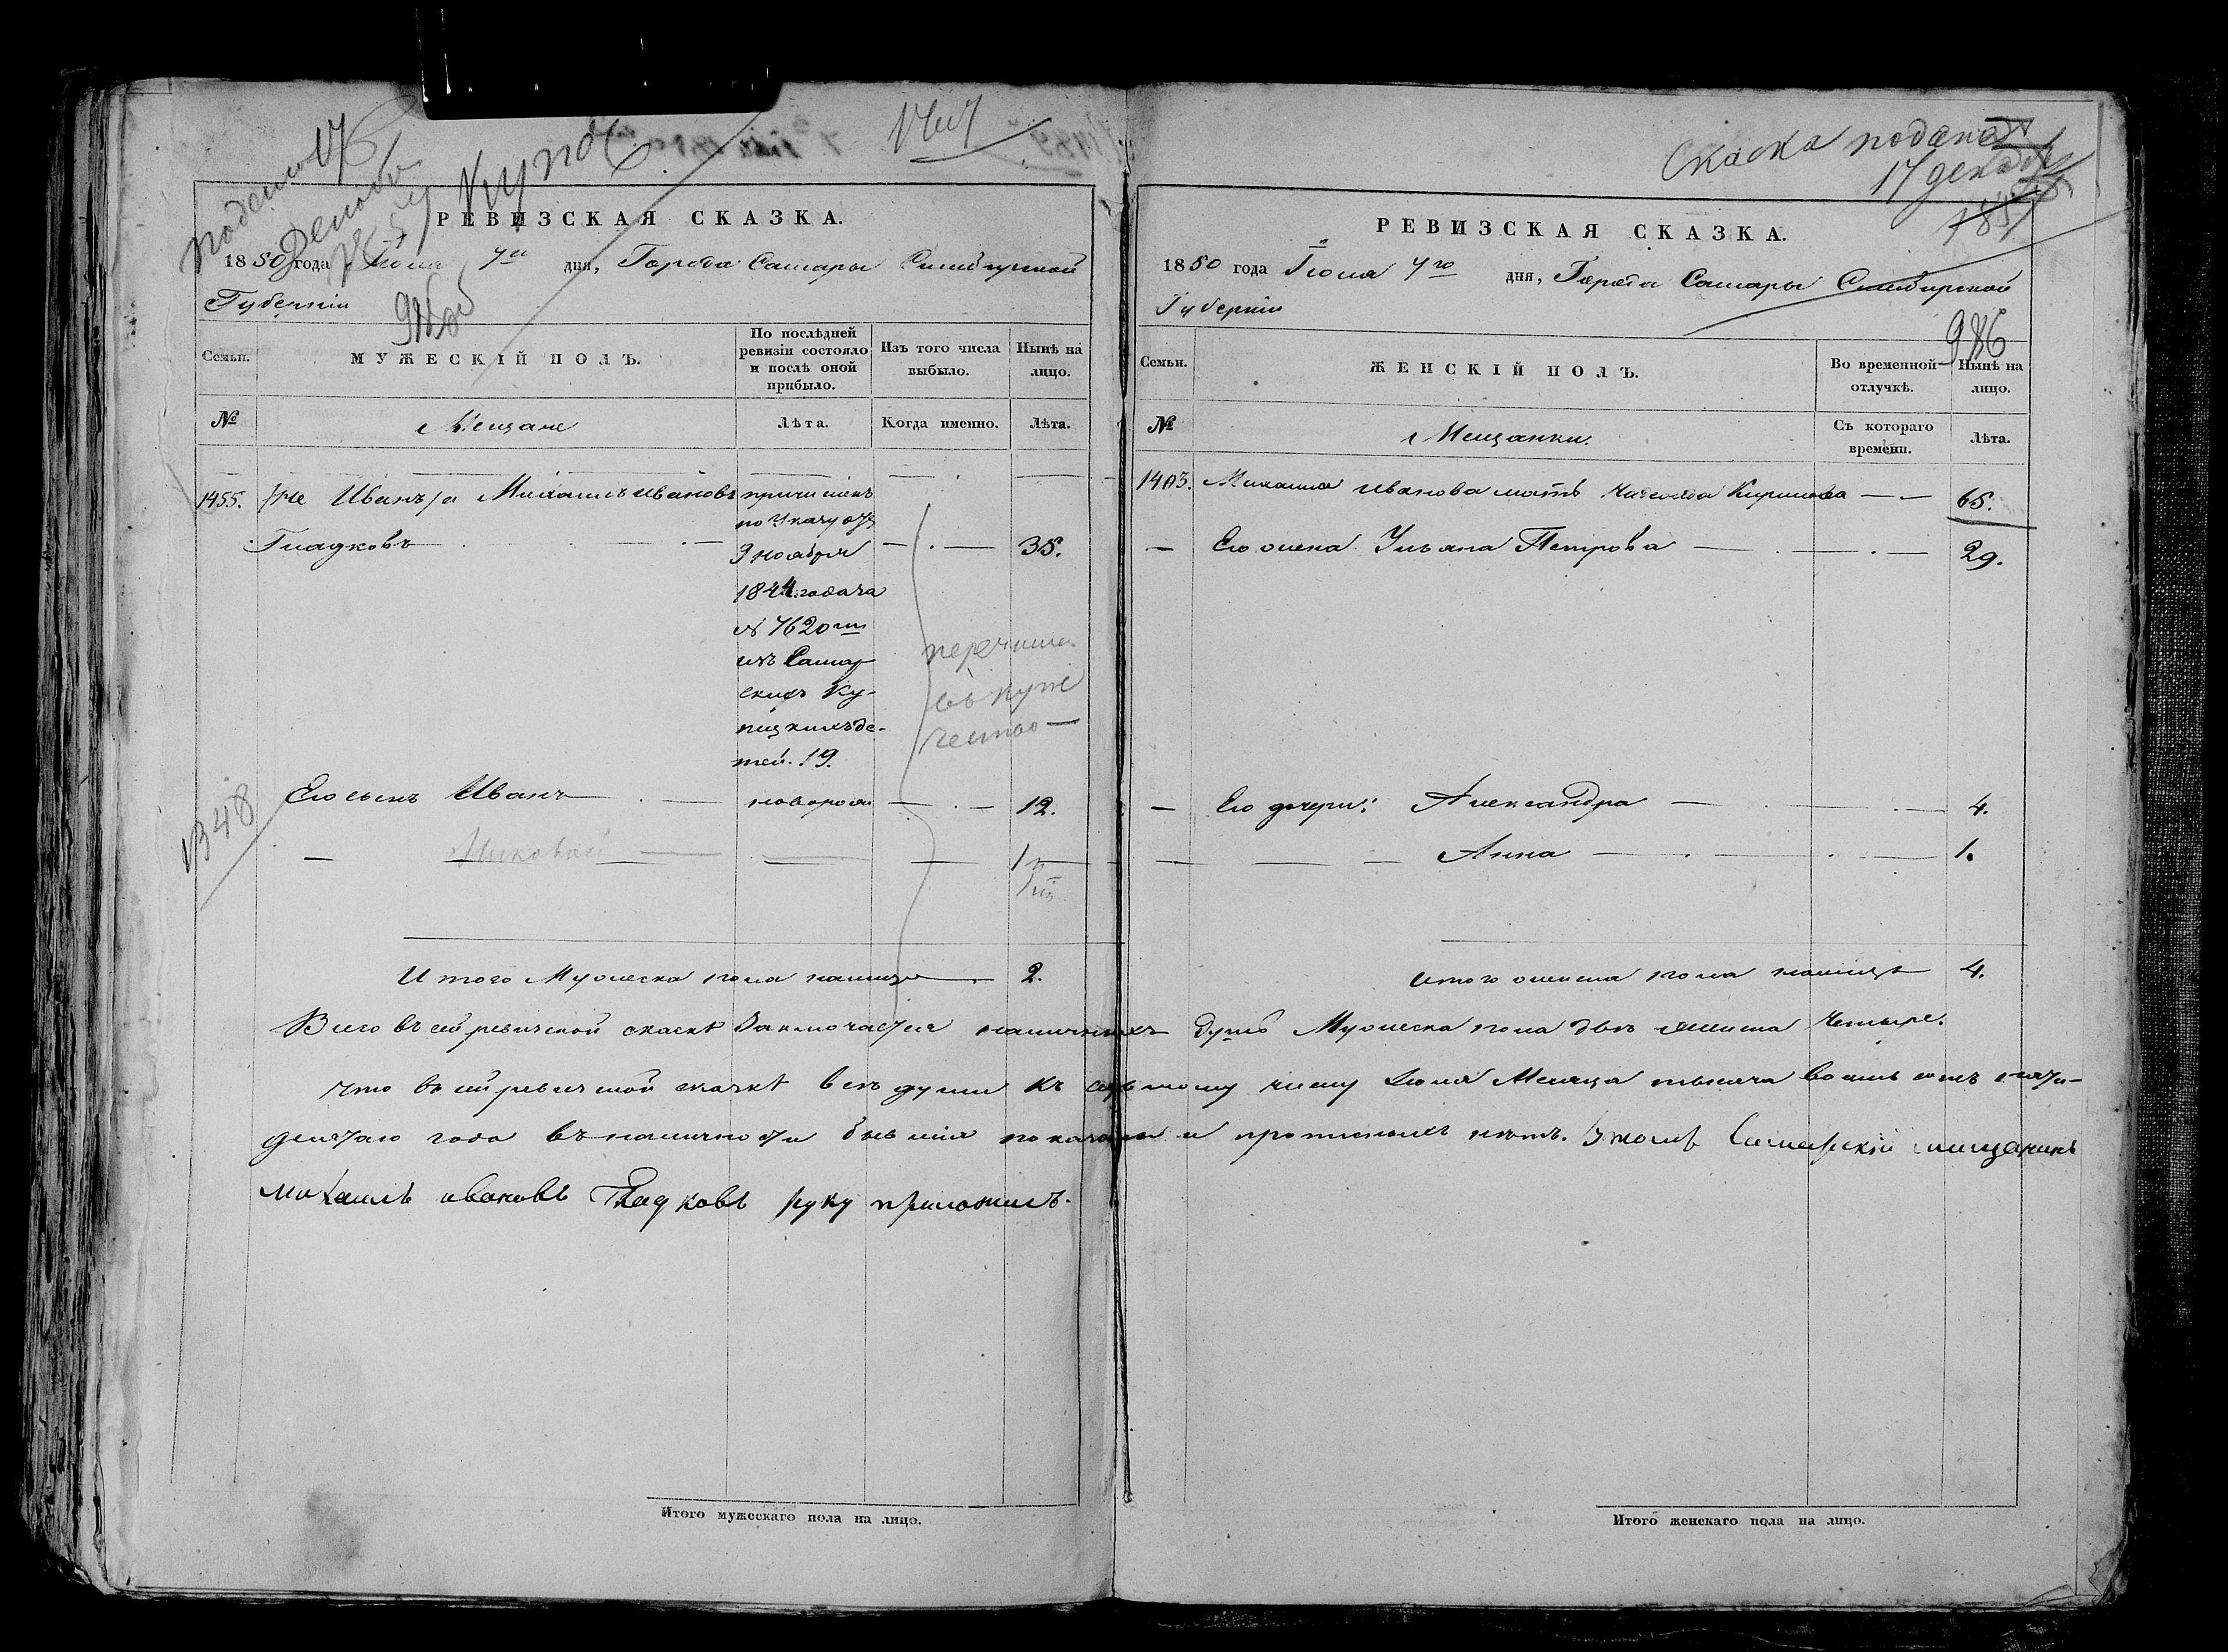 Купо
Скаска подана
17 декаб
1851
РЕВИЗСКАЯ СКАЗКА.
1850 года Iюля 7го дня, Города Самары Симбирской
Губернiи
Семьи.
МУЖЕСКIЙ ПОЛЪ.
По послѣдней ревизiи состояло и послѣ оной прибыло.
Изъ того числа выбыло.
Нынѣ на лицо.
№
Мещане
Лѣта.
Когда именно.
Лѣта.
1455.
Михаилъ Ивановъ
Гладковъ
причисленъ
по Указу
9 ноября
1844 года за
№ 7620
изъ Самар
скихъ Ку-
пецкихъ де-
тей. 19.
35.
перечисл
въ купе
чество
Его сынъ Иванъ
новорож
12.
1348
Николай
Итого Мужеска пола налицо 2.
РЕВИЗСКАЯ СКАЗКА.
1850 года Iюля 7го дня, Города Самары Симбирской
Губернiи
986
Семьи.
ЖЕНСКIЙ ПОЛЪ.
Во временной отлучкѣ.
Нынѣ на лицо.
№
Мещанки.
Съ котораго времени.
Лѣта.
1403. Михаила Иванова мать Кирилова 65.
Его жена Ульяна Петрова 29.
Его дочери: Александра 4.
Анна 1.
Итого женска пола налицо 4.
Всего въ сей ревизской сказкѣ заключается наличныхъ душъ Мужеска пола двѣ женска четыре.
что въ сей ревизской сказкѣ все души къ седьмому числу Iюля Месяца тысяча восемь сотъ пяти-
десятаго года въ наличности бывшiя показаны и прописныхъ нѣтъ. Самарскiй мещанинъ
Михаилъ Ивановъ Гладковъ руку приложилъ.
Итого мужескаго пола на лицо.
Итого женскаго пола на лицо.